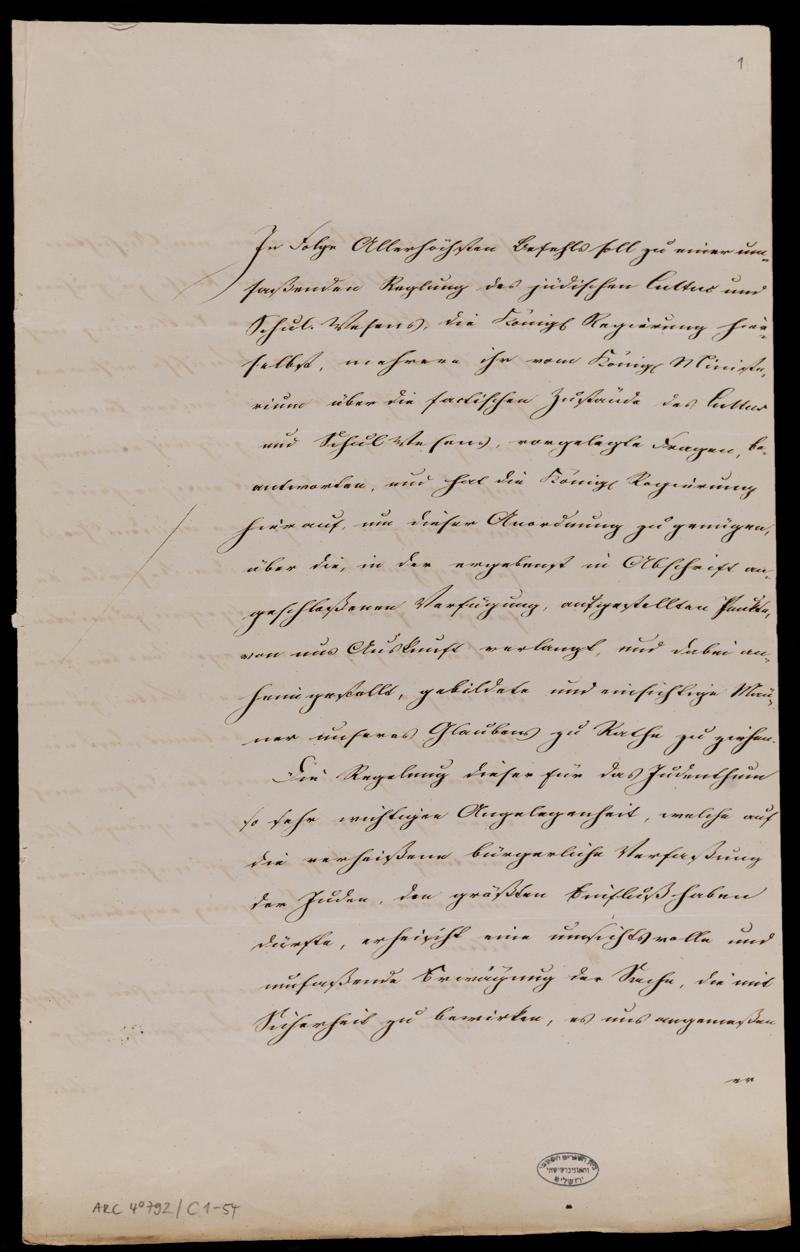 1
In Folge Allerhöchsten Befehls soll zu einer um-
faßenden Reglung des jüdischen Cultus und
Schul-Wesens, die Königl Regierung hier-
selbst, mehrere ihr vom Königl Ministe-
rium über die factischen Zustände des Cultus
und Schul Wesens, vorgelegte Fragen, be-
antworten, und hat die Königl Regierung
hierauf, um dieser Anordnung zu genügen,
über die, in der ergebenst in Abschrift an-
geschloßenen Verfügung, aufgestellten Punkte,
von uns Auskunft verlangt, und dabei an-
heim gestellt, gebildete und einsichtige Män-
ner unseres Glaubens zu Rathe zu ziehen.
Die Regelung dieser für das Judenthum
so sehr wichtigen Angelegenheit, welche auf
die verheißene bürgerliche Verfaßung
der Juden, den größten Einfluß haben
dürfte, erheischt eine umsichtsvolle und
umfaßende Erwägung der Sache, die mit
Sicherheit zu bewirken, es uns angemeßen
er
בית הספרים הלאומי
והאוניברסיטאי
ירושלים
ARC 4° 792 / C 1-54